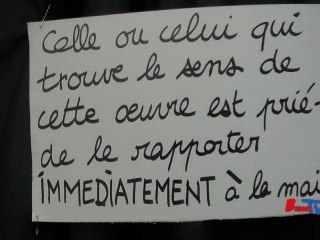 Celle ou celui qui
trouve le sens de
cette œuvre est prié-
de le rapporter
IMMEDIATEMENT à la mai